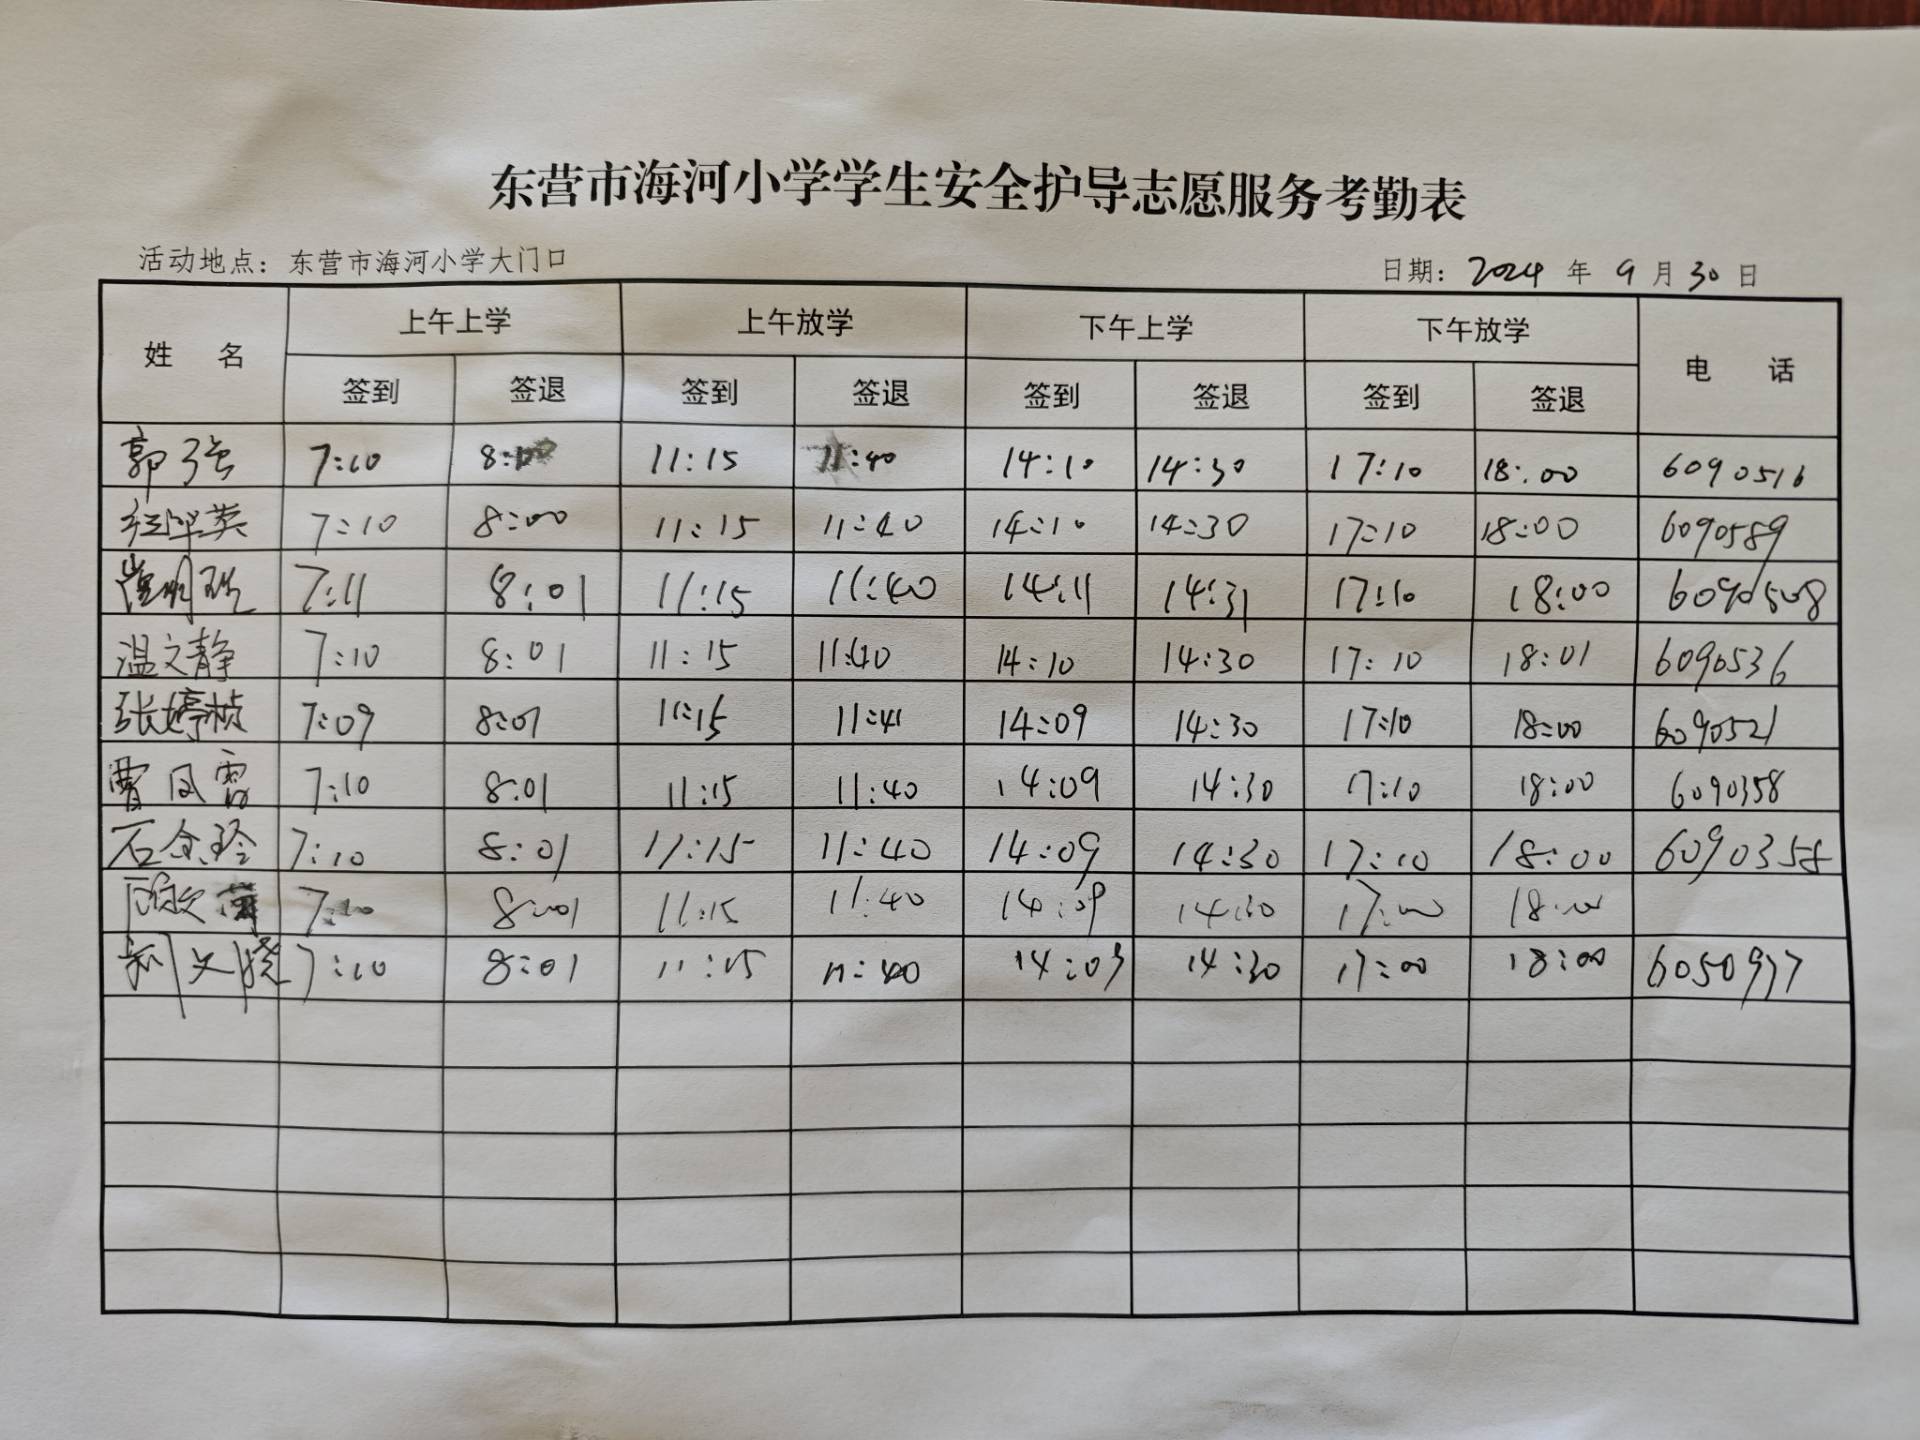 东营市海河小学学生安全护导志愿服务考勤表
活动地点：东营市海河小学大门口 日期：2024 年 9 月 30 日
姓 名 上午上学 上午放学 下午上学 下午放学 电 话
签到 签退 签到 签退 签到 签退 签到 签退
郭强 7:10 8:00 11:15 11:40 14:10 14:30 17:10 18:00 6090516
7:10 8:00 11:15 11:40 14:10 14:30 17:10 18:00 6090589
7:11 8:01 11:15 11:40 14:11 14:31 17:10 18:00 6090508
温文静 7:10 8:01 11:15 11:40 14:10 14:30 17:10 18:01 6090536
张婷桢 7:09 8:01 11:15 11:41 14:09 14:30 17:10 18:00 6090521
曹凤霞 7:10 8:01 11:15 11:40 14:09 14:30 17:10 18:00 6090358
石金玲 7:10 8:01 11:15 11:40 14:09 14:30 17:10 18:00 6090358
7:10 8:01 11:15 11:40 14:09 14:30 17:00 18:00
刘文晓 7:10 8:01 11:15 11:40 14:09 14:30 17:00 18:00 6050977